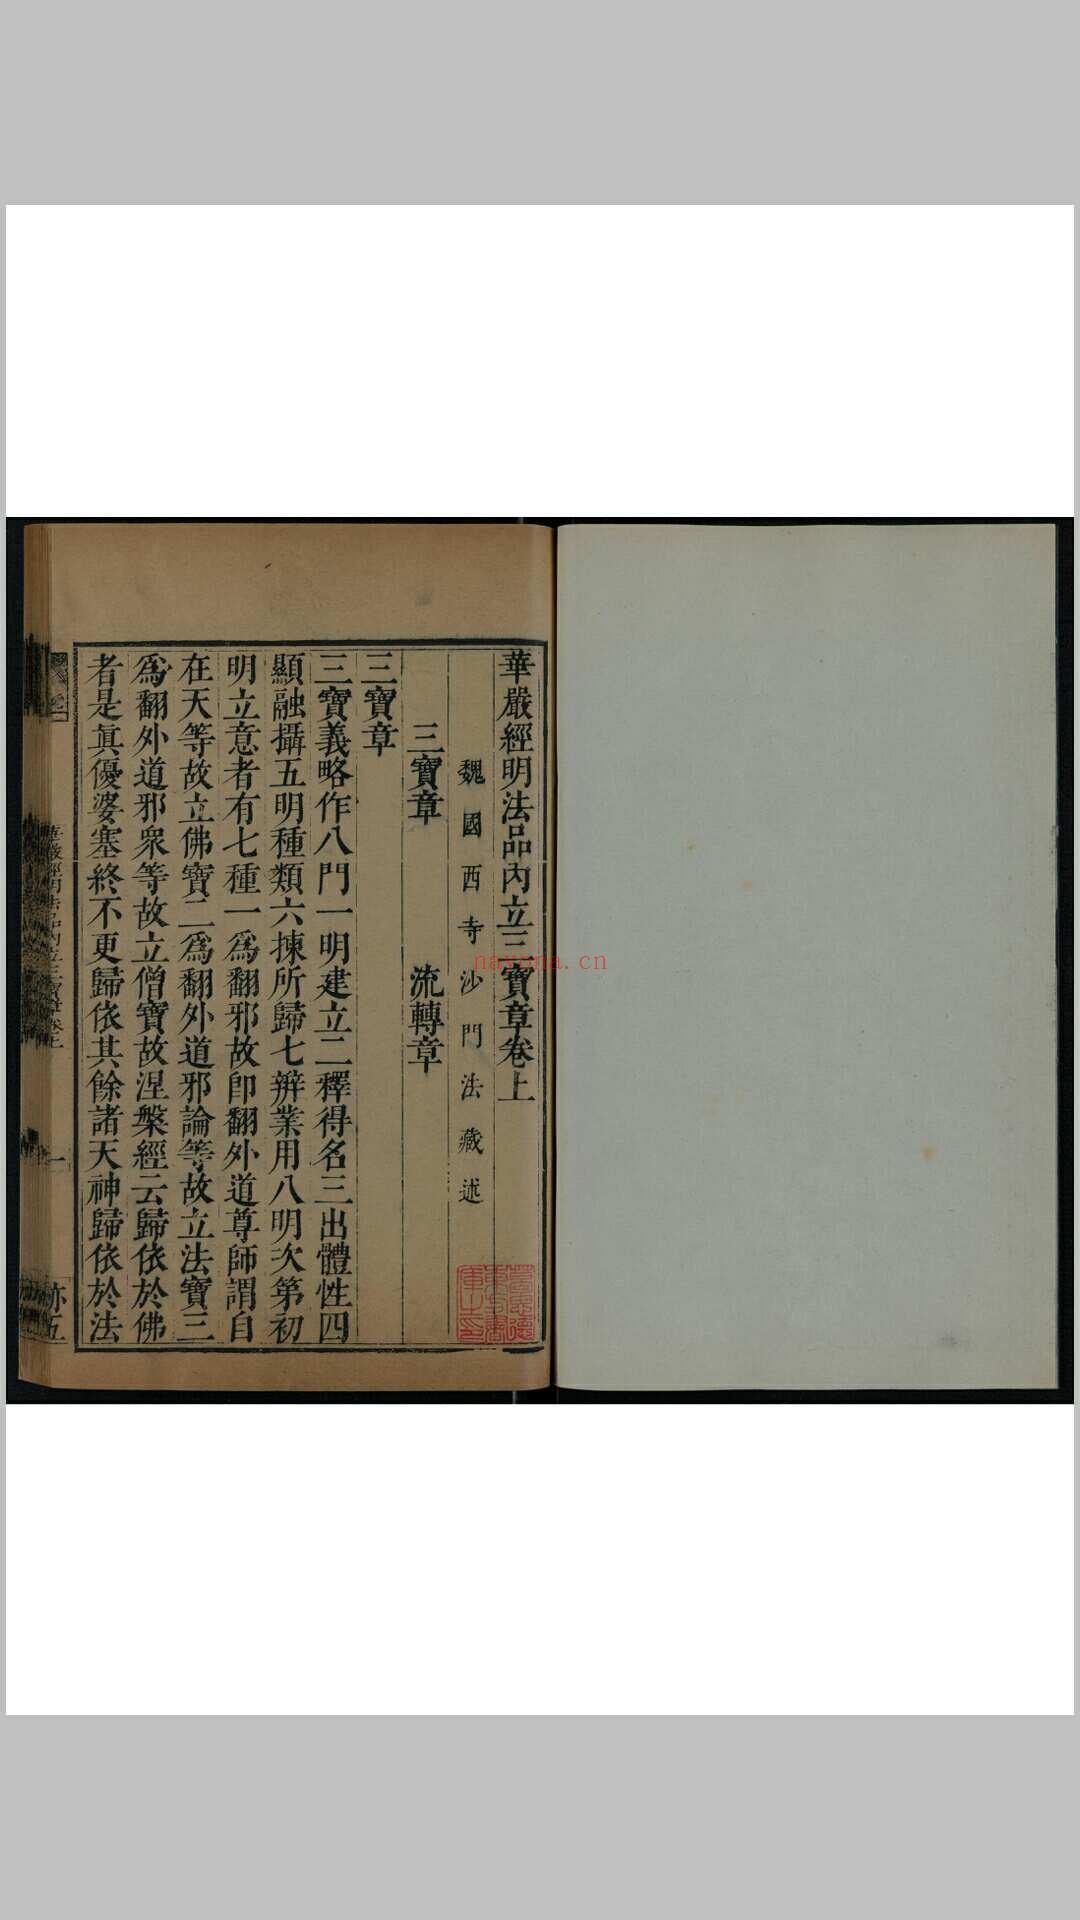 華嚴經明法品內立三寶章卷上
魏國西寺沙門法藏述
三寶章 流轉章
三寶章
三寶義略作八門一明建立二釋得名三出體性四
顯融攝五明種類六揀所歸七辨業用八明次第初
明立意者有七種一為翻邪故卽翻外道尊師謂自
在天等故立佛寶二為翻外道邪論等故立法寶三
為翻外道邪眾等故立僧寶故涅槃經云歸依於佛
者是眞優婆塞終不更歸依其餘諸天神歸依於法
華嚴經明法品內立三寶章卷上
一
亦五
nayona.cn